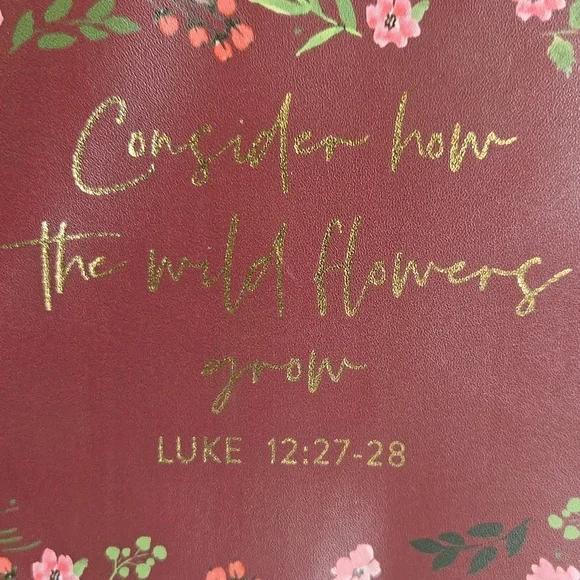 Consider how
the wild flowers
grow
LUKE 12:27-28